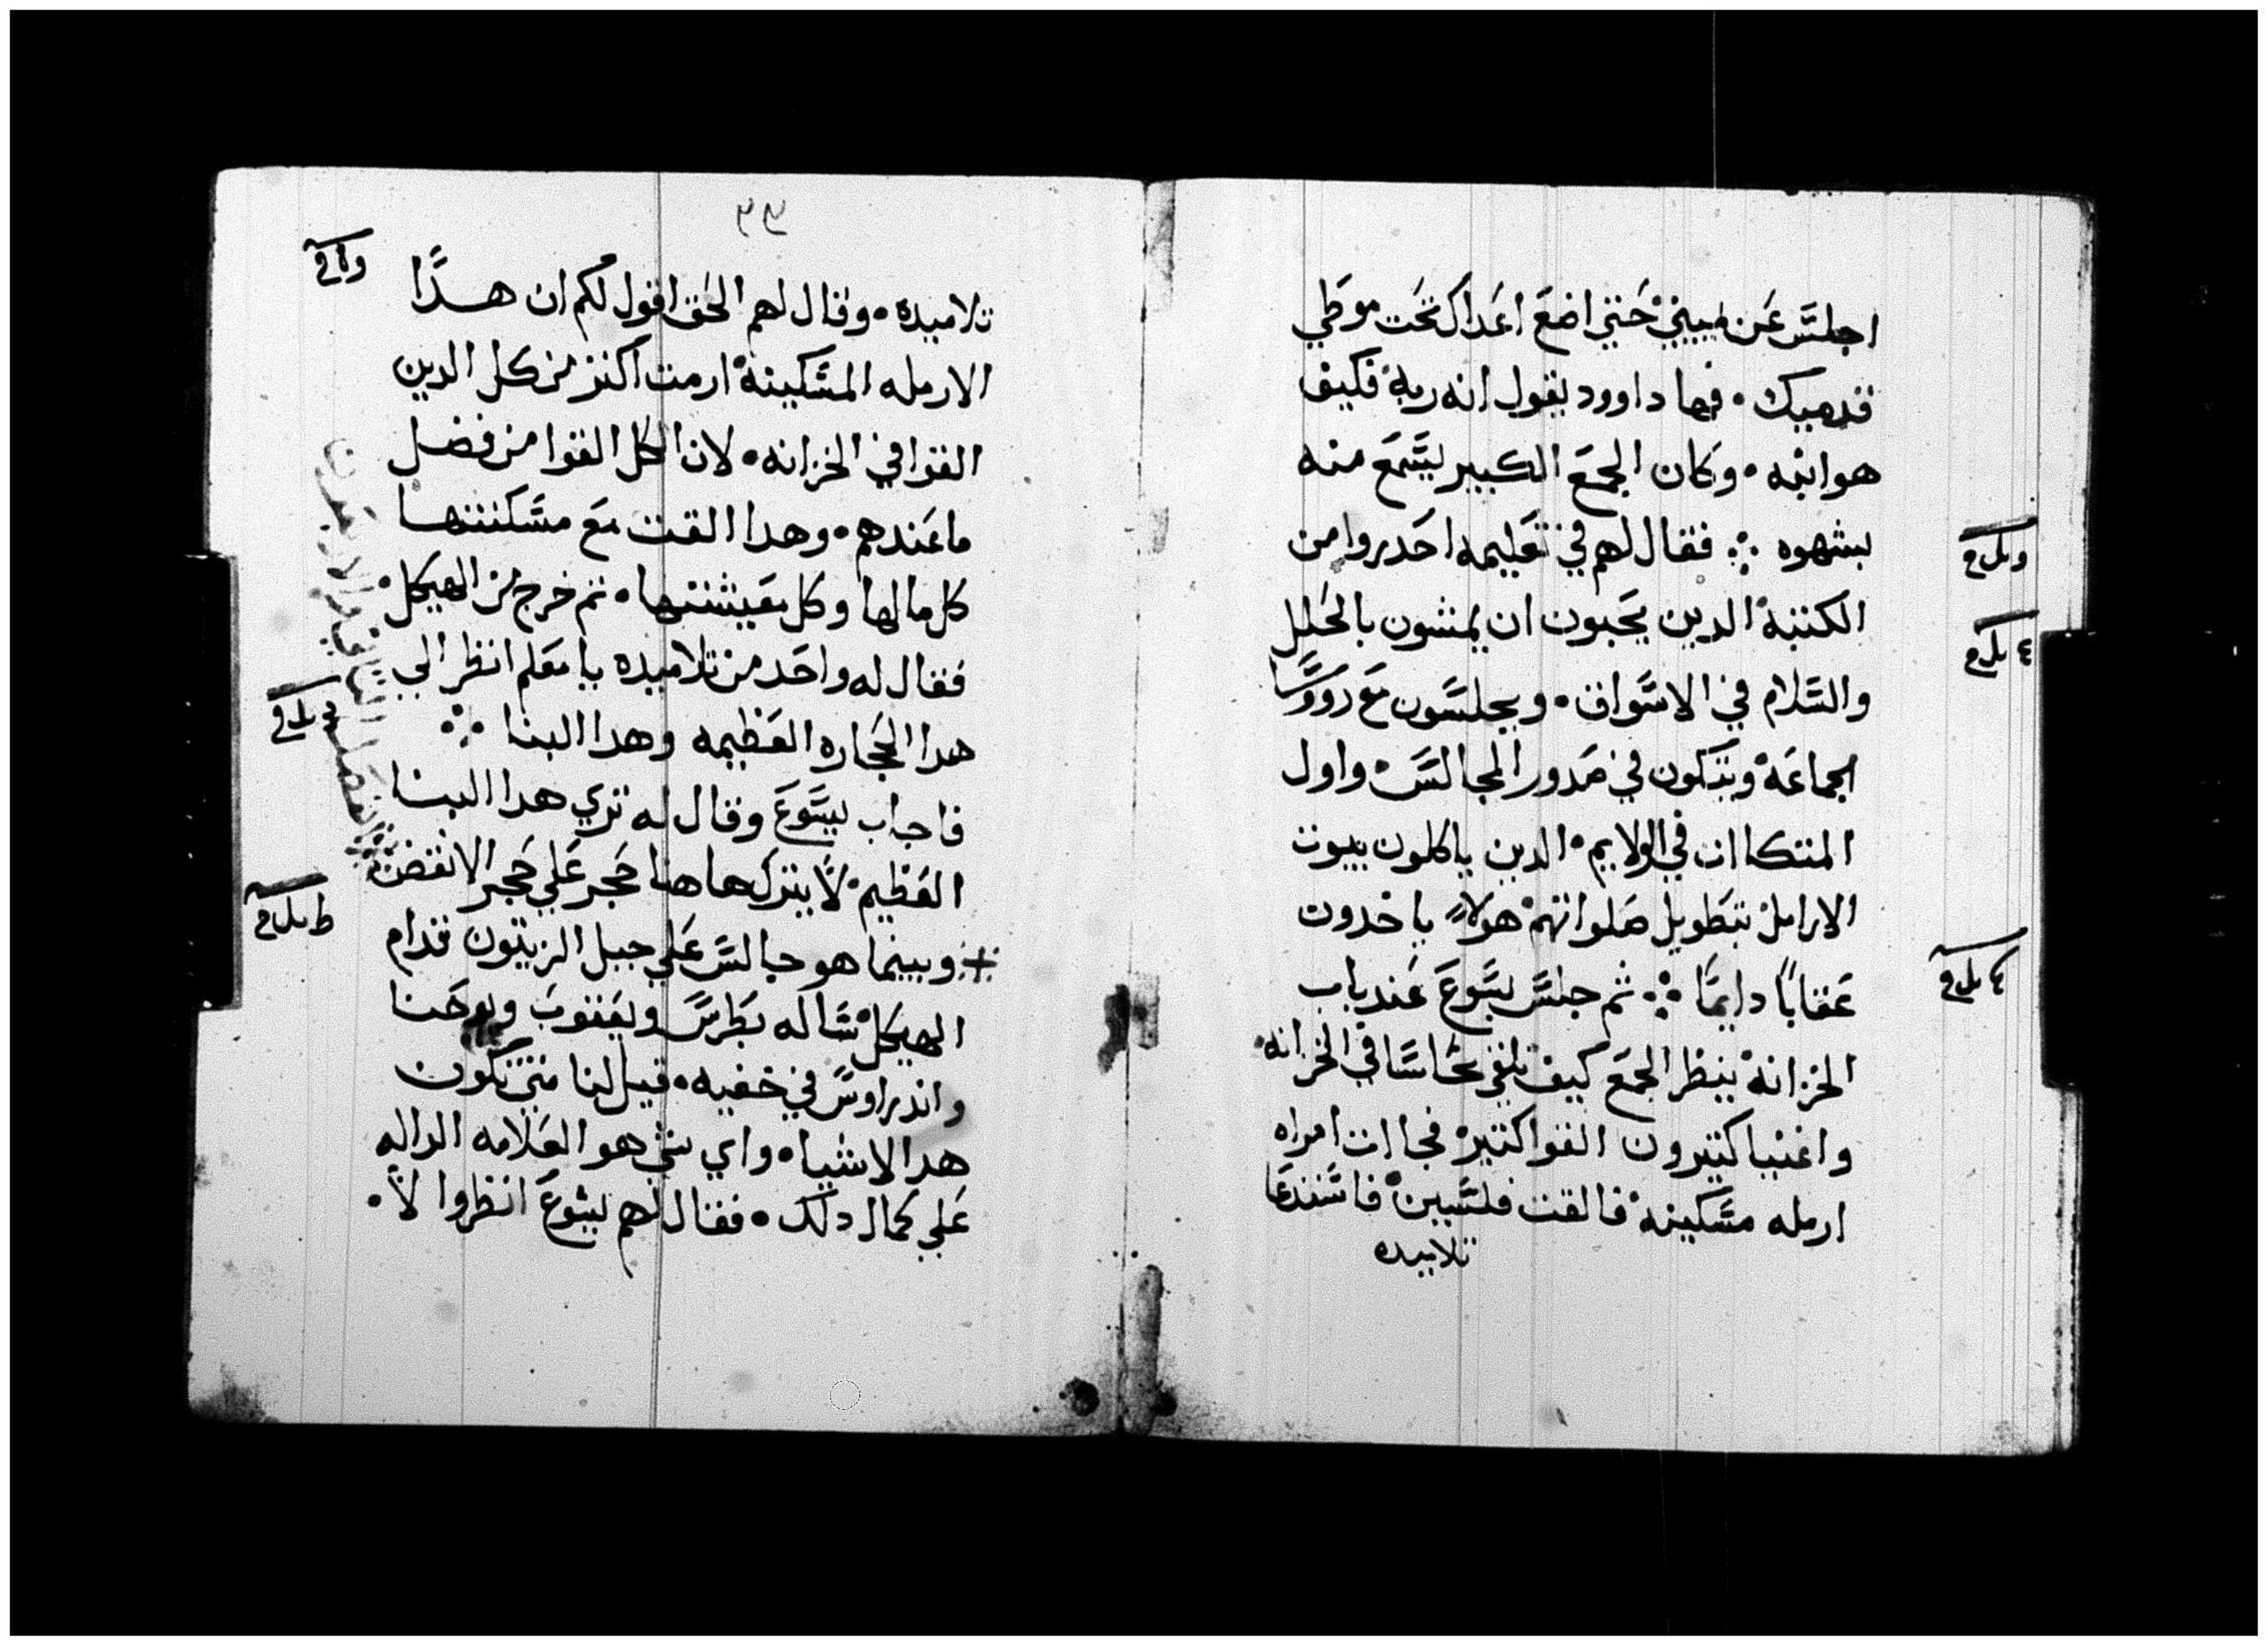 اجلس عن يميني حتي اضع اعداك تحت موطي
قدميك • فهما داوود يقول انه ربه فكيف
هو ابنه • وكان الجمع الكبير يسمع منه
بشهوه ⁘ فقال لهم في تعليمه احدروا من
الكتبه الدين يحبون ان يمشون بالحلل
والسلام في الاسواق • ويجلسون مع رووسا
الجماعه ويتكون في صدور المجالس واول
المتكاات في الولايم • الدين ياكلون بيوت
الارامل بتطويل صلواتهم هولاء ياخدون
عقابا دايما ⁘ ثم جلس يسوع عند باب
الخزانه ينظر الجمع كيف تلقي نحاسا في الخزانه
واغنيا كتيرون القوا كتير فجاات امراه
ارمله مسكينه فالقت فلسين فاستدعا
تلاميده
٣٣
تلاميده • وقال لهم الحق اقول لكم ان هدا
الارمله المسكينه ارمت اكتر من كل الدين
القوا في الخزانه • لان الكل القوا من فضل
ما عندهم • وهدا القت مع مسكنتها
كل مالها وكل معيشتها • تم خرج من الهيكل •
فقال له واحد من تلاميده يا معلم انظر الي
هدا الحجاره العظيمه وهدا البنا ⁘
فاجاب يسوع وقال له تري هدا البنا
العظيم لا يترك هاهنا حجر علي حجر الا نقض
وبينما هو جالس علي جبل الزيتون قدام
الهيكل ساله بطرس ويعقوب ويوحنا
واندراوس في خفيه • قيل لنا متي تكون
هدا الاشياء واي شي هو العلامه الداله
علي كمال دلك • فقال لهم يسوع انظروا لا •